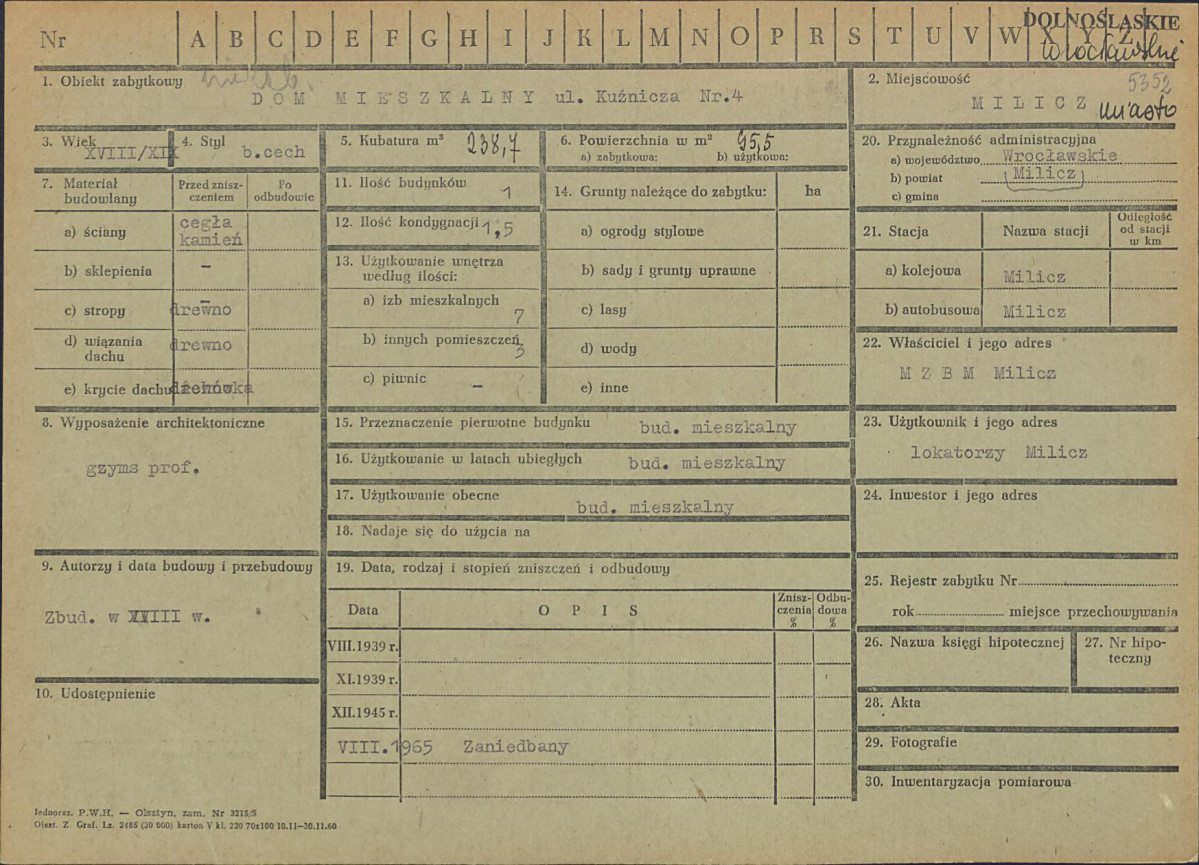 Nr A B C D E F G H I J K L M N O P R S T U V W X Y Z
DOLNOŚLĄSKIE
wrocławskie
1. Obiekt zabytkowy
DOM MIESZKALNY ul. Kuźnicza Nr.4
2. Miejscowość
5352
MILICZ miasto
3. Wiek
XVIII/XIX
4. Styl
b.cech
5. Kubatura m³ 238,7
6. Powierzchnia w m² 95,5
a) zabytkowa: b) użytkowa:
20. Przynależność administracyjna
a) województwo Wrocławskie
b) powiat Milicz
c) gmina
7. Materiał budowlany
Przed zniszczeniem
Po odbudowie
a) ściany cegła kamień
b) sklepienia –
c) stropy drewno
d) wiązania dachu drewno
e) krycie dachu
8. Wyposażenie architektoniczne
gzyms prof.
9. Autorzy i data budowy i przebudowy
Zbud. w XVIII w.
10. Udostępnienie
11. Ilość budynków 1
12. Ilość kondygnacji 1,5
13. Użytkowanie wnętrza według ilości:
a) izb mieszkalnych 7
b) innych pomieszczeń 3
c) piwnic –
14. Grunty należące do zabytku: ha
a) ogrody stylowe
b) sady i grunty uprawne
c) lasy
d) wody
e) inne
15. Przeznaczenie pierwotne budynku bud. mieszkalny
16. Użytkowanie w latach ubiegłych bud. mieszkalny
17. Użytkowanie obecne bud. mieszkalny
18. Nadaje się do użycia na
19. Data, rodzaj i stopień zniszczeń i odbudowy
Data OPIS Zniszczenia % Odbudowa %
VIII.1939 r.
XI.1939 r.
XII.1945 r.
VIII.1965 Zaniedbany
21. Stacja Nazwa stacji Odległość od stacji w km
a) kolejowa Milicz
b) autobusowa Milicz
22. Właściciel i jego adres
M Z B M Milicz
23. Użytkownik i jego adres
lokatorzy Milicz
24. Inwestor i jego adres
25. Rejestr zabytku Nr
rok miejsce przechowywania
26. Nazwa księgi hipotecznej
27. Nr hipoteczny
28. Akta
29. Fotografie
30. Inwentaryzacja pomiarowa
Jednoraz. P.W.H. — Olsztyn, zam. Nr 3215/S
Olszt. Z. Graf. Lz. 2485 (30 000) karton V kl. 220 70x100 10.11—30.11.60